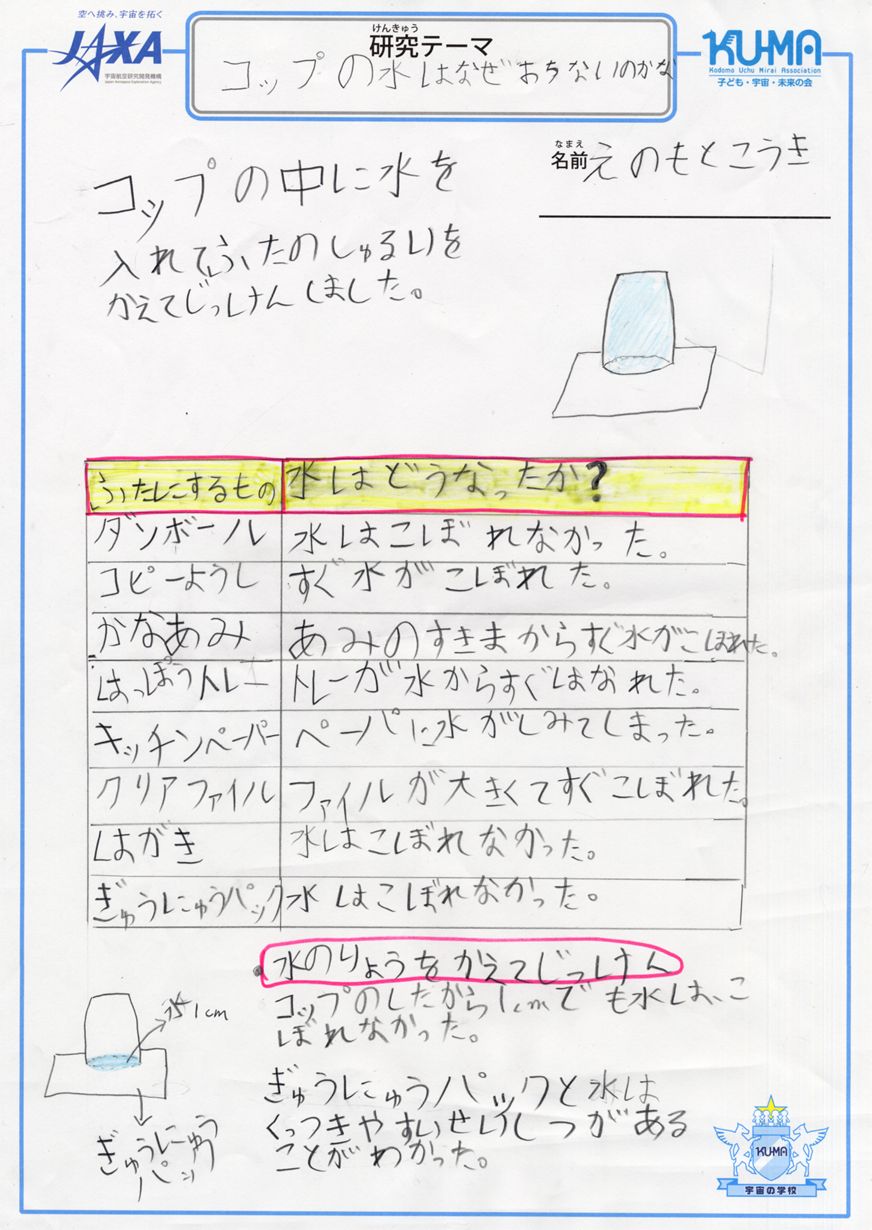 空へ挑み、宇宙を拓く
JAXA
宇宙航空研究開発機構
Japan Aerospace Exploration Agency
けんきゅう
研究テーマ
コップの水はなぜおちないのかな
KU-MA
Kodomo Uchu Mirai Association
子ども・宇宙・未来の会
なまえ
名前 えのもとこうき
コップの中に水を
入れてふたのしゅるいを
かえてじっけんしました。
ふたにするもの 水はどうなったか?
ダンボール 水はこぼれなかった。
コピーようし すぐ水がこぼれた。
かなあみ あみのすきまからすぐ水がこぼれた。
はっぽうトレー トレーが水からすぐはなれた。
キッチンペーパー ペーパに水がしみてしまった。
クリアファイル ファイルが大きくてすぐこぼれた。
はがき 水はこぼれなかった。
ぎゅうにゅうパック 水はこぼれなかった。
・水のりょうをかえてじっけん
コップのしたから1cmでも水は、こ
ぼれなかった。
水1cm
ぎゅうにゅう
パック
ぎゅうにゅうパックと水は
くっつきやすいせいしつがある
ことがわかった。
KU-MA
宇宙の学校